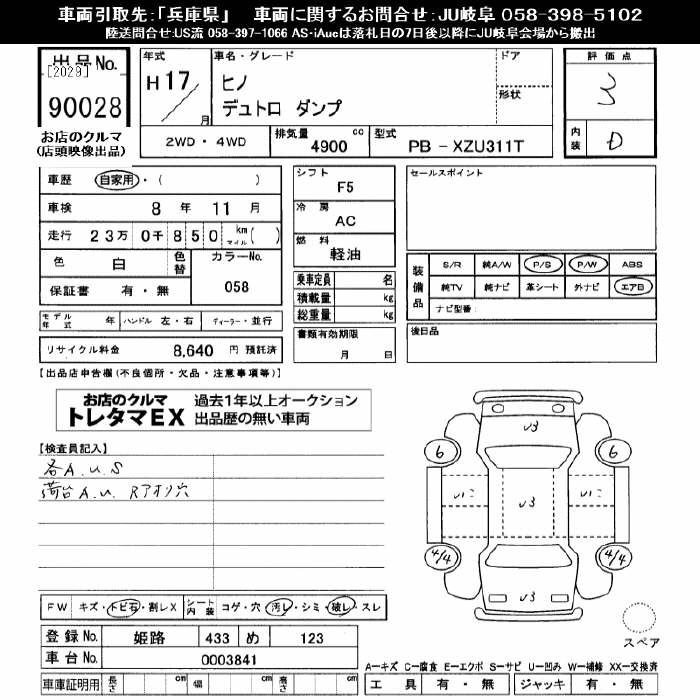 車両引取先:「兵庫県」 車両に関するお問合せ:JU岐阜 058-398-5102
陸送問合せ:US流 058-397-1066 AS-iAucは落札日の7日後以降にJU岐阜会場から搬出
出品No.
[2029]
90028
お店のクルマ
(店頭映像出品)
年式
H17/月
車名・グレード
ヒノ
デュトロ ダンプ
ドア
形状
評価点
3
内装
D
2WD・4WD
排気量 4900 cc
型式 PB-XZU311T
車歴 自家用・( )
車検 8年 11月
走行 23万 0千 850 km マイル ( )
色 白 色替
カラーNo.
058
保証書 有・無
モデル年式 年 ハンドル 左・右 ディーラー・並行
リサイクル料金 8,640 円 預託済
シフト
F5
冷房
AC
燃料
軽油
乗車定員 名
積載量 kg
総重量 kg
書類有効期限
月 日
セールスポイント
装備品
S/R 純A/W P/S P/W ABS
純TV 純ナビ 革シート 外ナビ エアB
ナビ型番:
後日品
【出品店申告欄(不良個所・欠品・注意事項等)】
お店のクルマ
トレタマEX
過去1年以上オークション
出品歴の無い車両
【検査員記入】
各A.U.S
荷台A.U. Rアオリ穴
U3
6
6
U12
U3
U12
4/4
4/4
U3
スペア
FW キズ・トビ石・割レX シート内装 コゲ・穴・汚レ・シミ・破レ・スレ
登録No. 姫路 433 め 123
車台No. 0003841
車庫証明用 長さ cm 幅 cm 高さ cm
A―キズ C―腐食 E―エクボ S―サビ U―凹み W―補修 XX―交換済
工具 有・無 ジャッキ 有・無